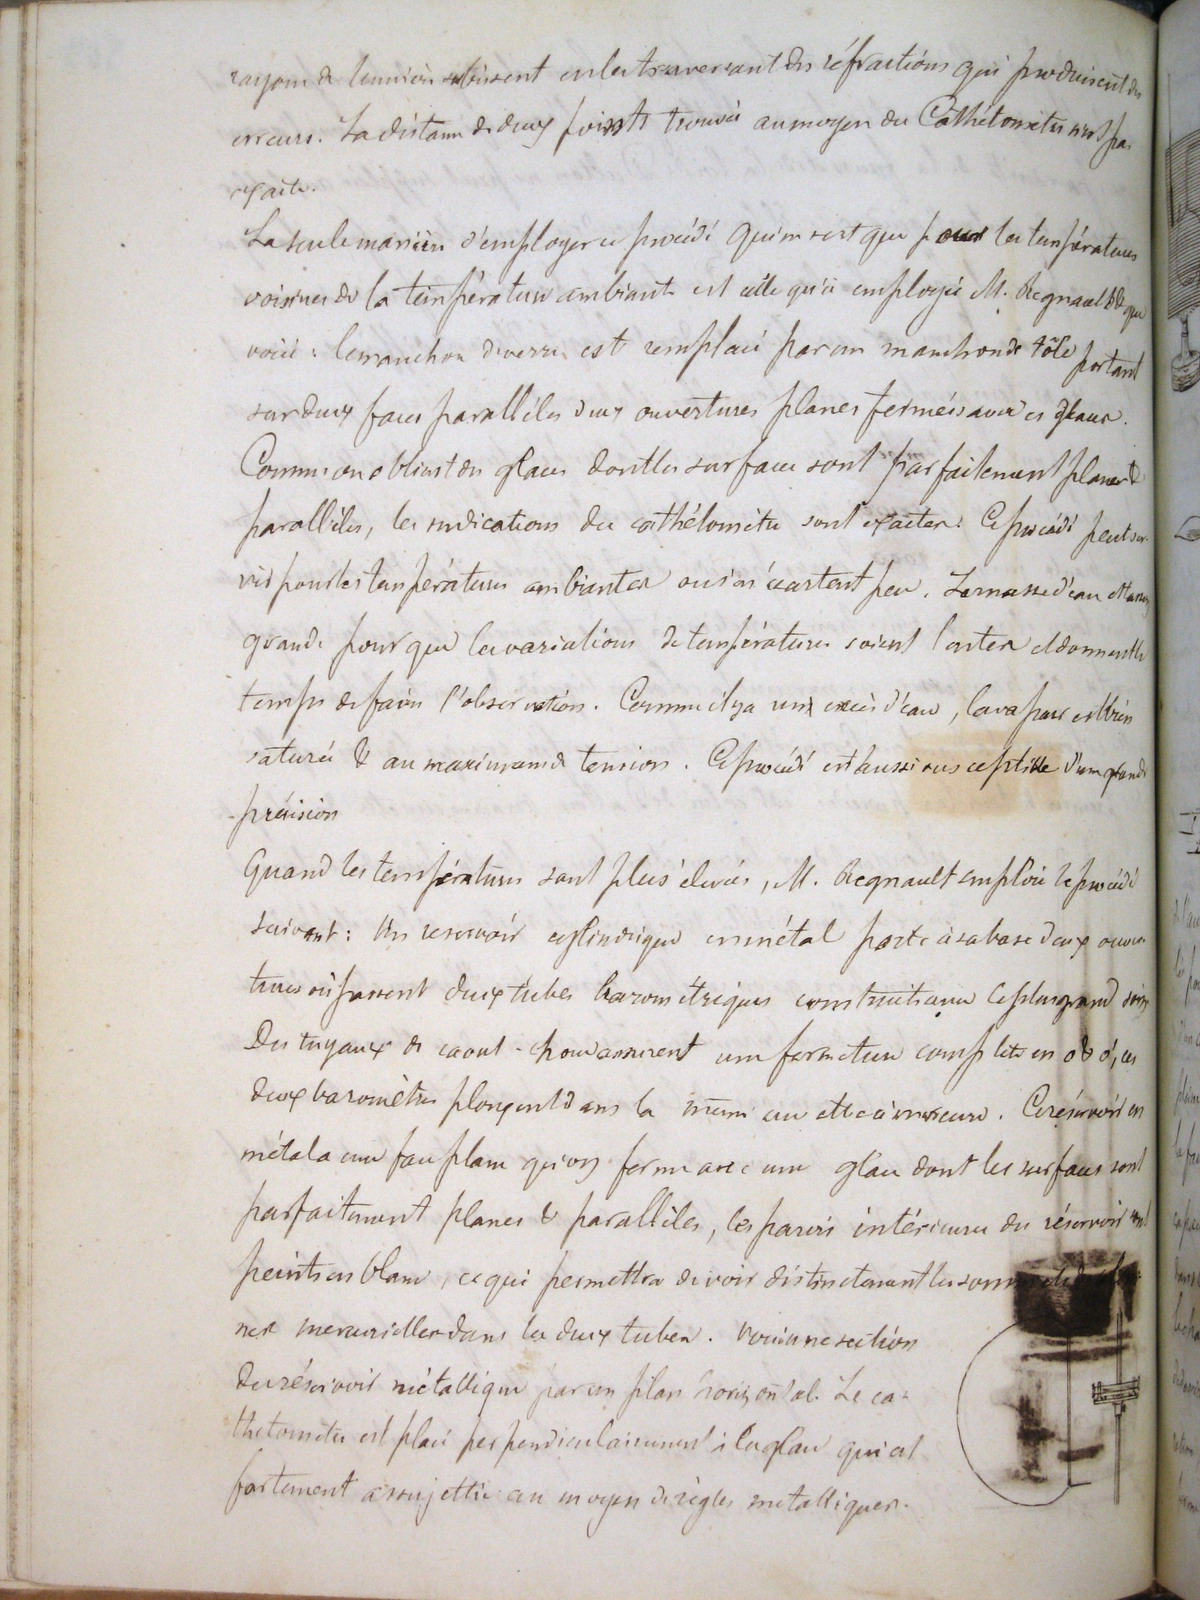 rayons de lumière subissent en les traversant des réfractions qui produisent des
erreurs. La distance de deux points trouvée au moyen du Cathétomètre n'est pas
exacte.
La seule manière d'employer ce procédé qui ne sert que pour les températures
voisines de la température ambiante est celle qu'a employée M. Regnault & que
voici : le manchon de verre est remplacé par un manchon de tôle portant
sur deux faces parallèles deux ouvertures planes fermées avec des glaces.
Comme on obtient des glaces dont les surfaces sont parfaitement planes &
parallèles, les indications du cathétomètre sont exactes. Ce procédé peut ser-
vir pour les températures ambiantes ou s'en écartent peu. La masse d'eau est assez
grande pour que les variations de température soient lentes et donnent le
temps de faire l'observation. Comme il y a un excès d'eau, la vapeur est bien
saturée & au maximum de tension. Ce procédé est aussi susceptible d'une grande
précision
Quand les températures sont plus élevées, M. Regnault emploie le procédé
suivant : Un reservoir cylindrique en métal porte à sa base deux ouver-
tures où passent deux tubes barométriques construits avec le plus grand soin
Des tuyaux de caout-chouc assurent une fermeture complète en o & o', ces
deux baromètres plongent dans la même cuvette à mercure. Ce réservoir en
métal a une face plane qu'on ferme avec une glace dont les surfaces sont
parfaitement planes & parallèles, les parois intérieures du réservoir sont
peintes en blanc, ce qui permettra de voir distinctement les sommets des colon-
nes mercurielles dans les deux tubes. Voici une section
du réservoir métallique par un plan horizontal. Le ca-
thetomètre est placé perpendiculairement à la glace qui est
fortement assujettie au moyen de règles métalliques.